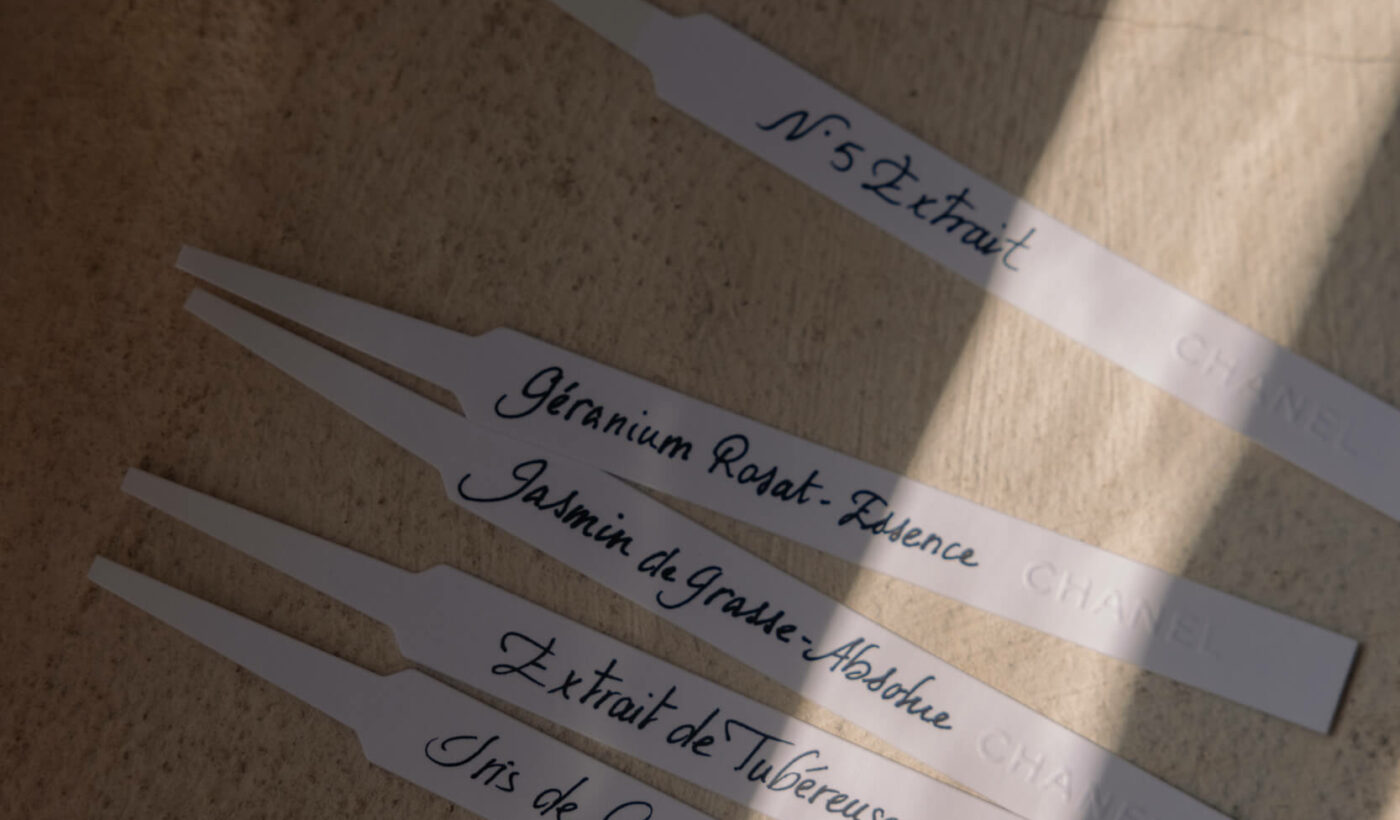 N°5 Extrait
CHANEL
Géranium Rosat - Essence
CHANEL
Jasmin de Grasse - Absolue
CHANEL
Extrait de Tubéreuse
Iris de